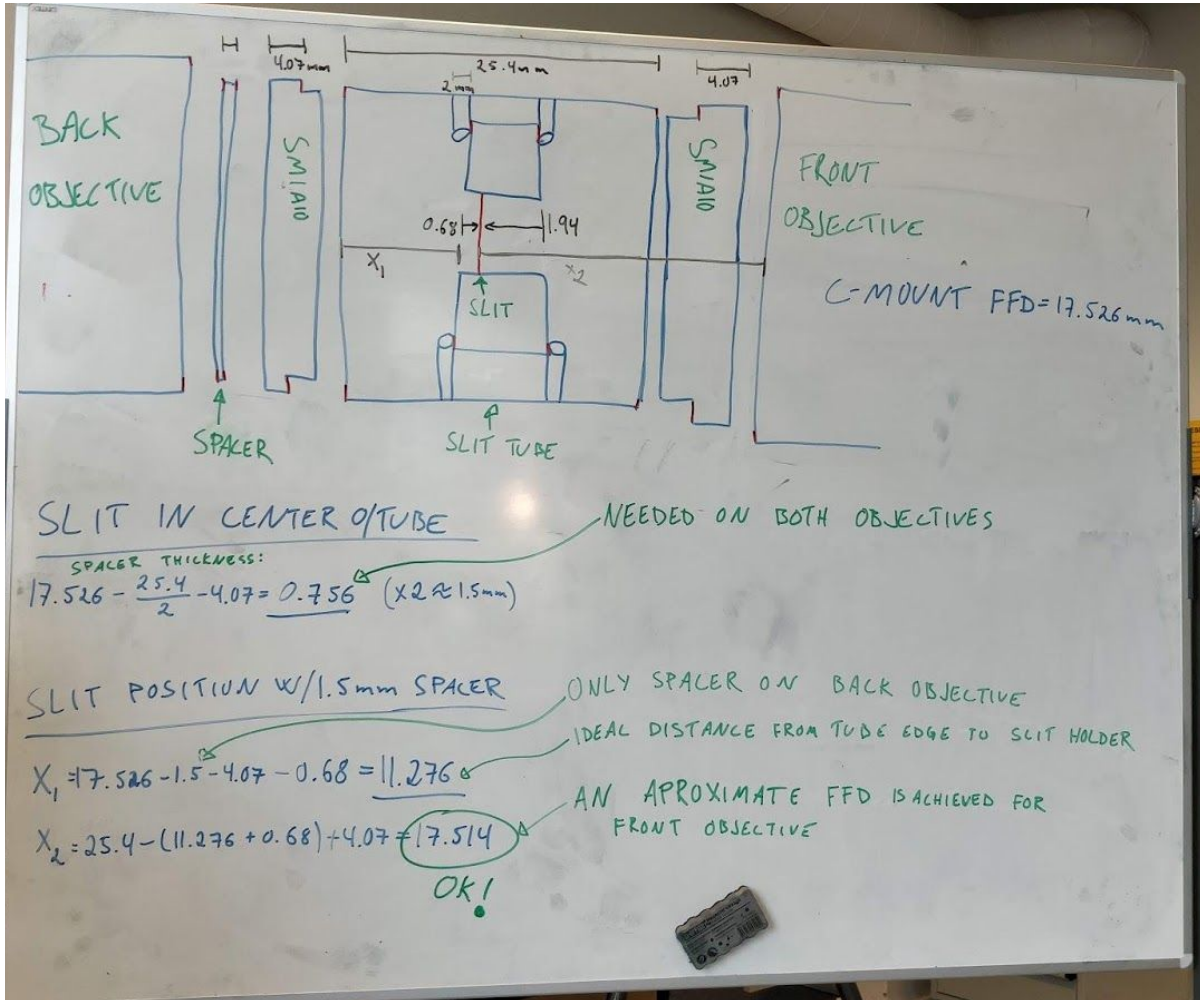 4.07mm
25.4mm
4.07
2 mm
BACK
OBJECTIVE
SM1A10
SM1A10
FRONT
OBJECTIVE
0.68
1.94
X₁
x₂
SLIT
C-MOUNT FFD=17.526mm
SPACER
SLIT TUBE
SLIT IN CENTER O/TUBE
NEEDED ON BOTH OBJECTIVES
SPACER THICKNESS:
17.526 - 25.4/2 - 4.07 = 0.756 (x2≈1.5mm)
SLIT POSITION W/1.5mm SPACER
ONLY SPACER ON BACK OBJECTIVE
IDEAL DISTANCE FROM TUBE EDGE TO SLIT HOLDER
X₁=17.526-1.5-4.07-0.68=11.276
AN APROXIMATE FFD IS ACHIEVED FOR
FRONT OBJECTIVE
X₂=25.4-(11.276+0.68)+4.07=17.514
OK!